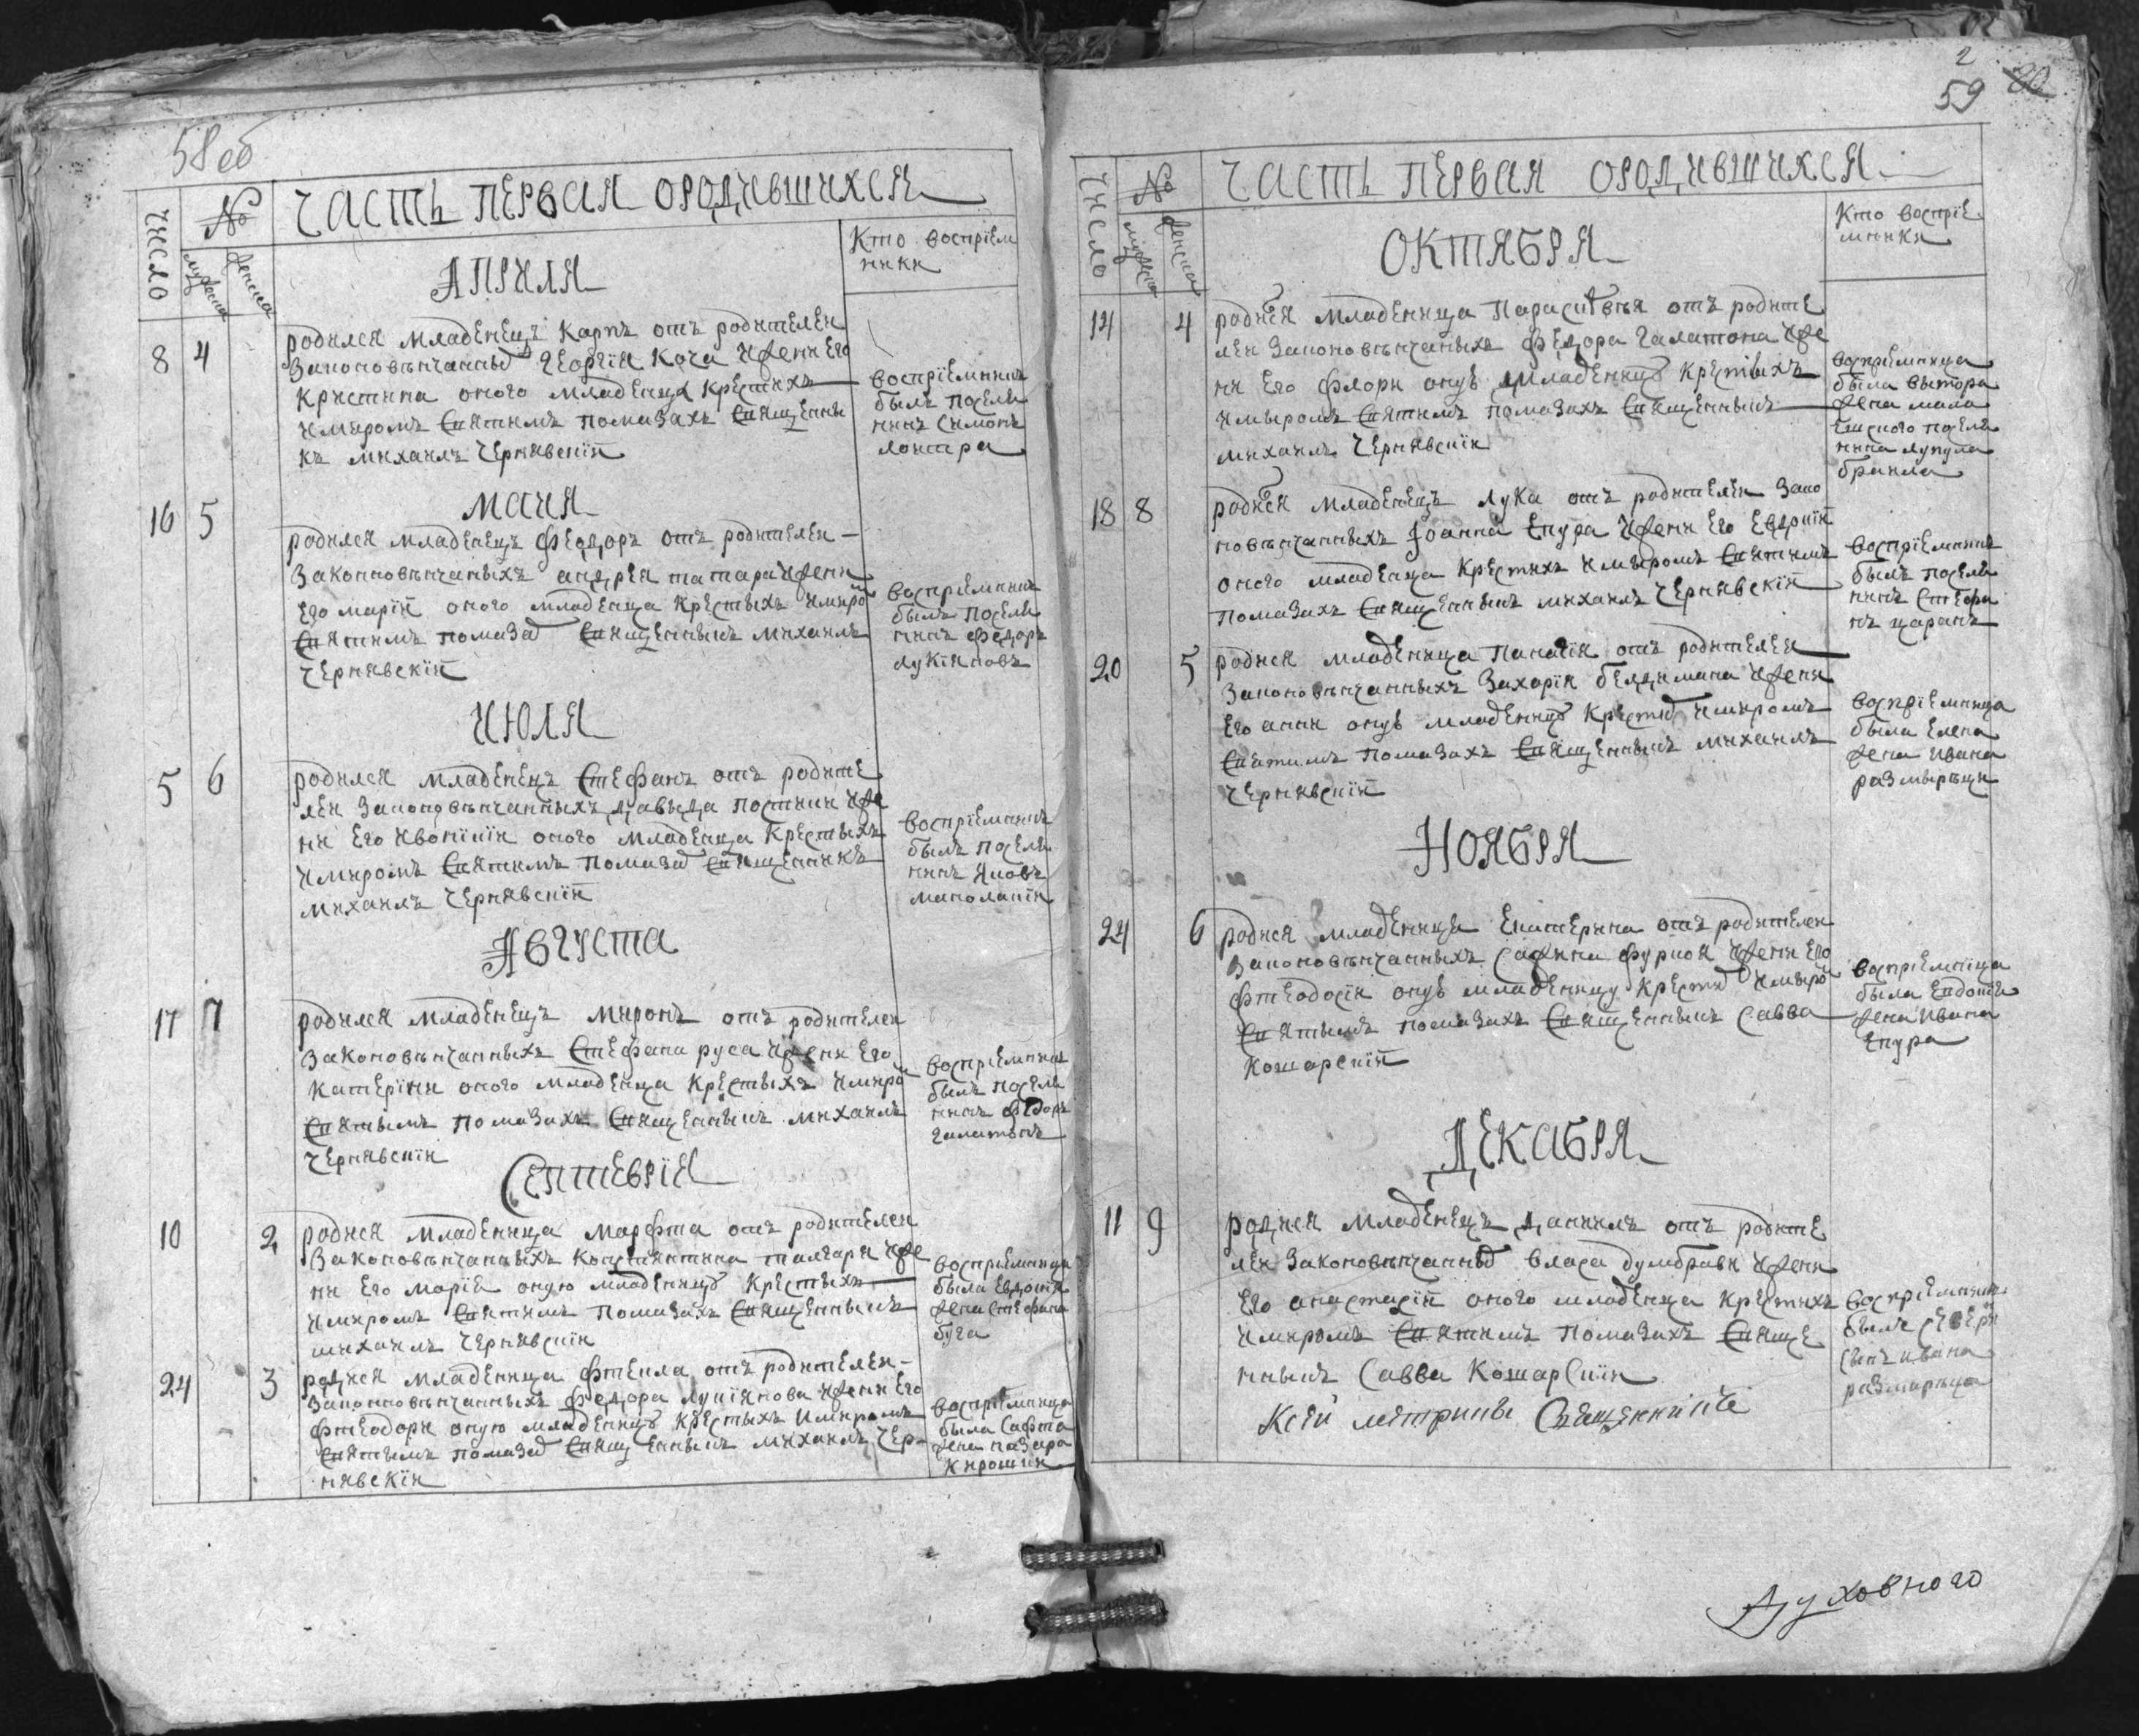 58 об
ЧИСЛО
№
мужеска
женска
ЧАСТЬ ПЕРВАЯ ОРОДИВШИХСЯ
Кто воспрїем
ники
АПРИЛЯ
8 4
родился младенецъ Карпъ отъ родителей
Законовѣнчанныхъ Георгїя Коча ижени Его
Кристина оного младенца Крестихъ
имиромъ Святимъ помазахъ Священни
къ михаилъ Чернявский
воспрїемникъ
былъ поселя
нинъ Симонъ
МАИЯ
16 5
родился младенецъ Феодоръ отъ родителей
Законновѣнчаныхъ андрея татара ижени
Его марїи оного младенца Крестихъ имиро
Святимъ помазах Священныкъ михаилъ
Чернявскїй
воспрїемникъ
былъ поселя
нинъ Федоръ
лукїяновъ
ИЮЛЯ
5 6
родился младенецъ Стефанъ отъ родите
лей Законовѣнчанныхъ давыда постики иже
ни Его оного младенца Крестыхъ
имиромъ Святимъ помазах Священикъ
михаилъ Чернявскїй
воспрїемникъ
былъ поселя
нинъ Яковъ
маполапїй
АВГУСТА
17 7
родился младенецъ миронъ отъ родителей
Законовѣнчанныхъ Стефана руса ижени Его
Катерїни оного младенца Крестыхъ имиро
Святымъ помазахъ Священныкъ михаилъ
Чернявскїй
воспрїемникъ
былъ поселя
нинъ Федоръ
галатонъ
СЕПТЕВРЇЯ
10 2
родися младеница марфта отъ родителей
Законовѣнчанныхъ Константина талгари иже
ни Его марїи оную младеницу Крестыхъ
имиромъ Святимъ помазахъ Священныкъ
михаилъ Чернявскїй
воспрїемница
была Евдокїя
жена Стефана
буга
24 3
родися младеница Фтекла отъ родителей
Законновѣнчанныхъ Федора лукїянова ижени Его
Фтеодори оную младеницу Крестыхъ имиромъ
Святымъ помазах Священныкъ михаилъ Чер
нявскїй
воспрїемница
была Сафта
жена назара
2
59
ЧИСЛО
№
мужеска
женска
ЧАСТЬ ПЕРВАЯ ОРОДИВШИХСЯ
Кто воспрїе
мники
ОКТЯБРЯ
14 4
родися младеница Параскѣвѣя отъ родите
лей Законовѣнчаныхъ Федора Галатона иже
ни Его Флори онуь младеницу Крестихъ
имыромъ Святимъ помазахъ Священныкъ
михаилъ Чернявскїй
воспрїемница
была вытора
жена мала
ешского поселя
нина лупула
браила
18 8
родися младенецъ лука отъ родителей Зако
новѣнчанныхъ Їоанна Епура ижени Его Евдокїи
оного младенца Крестихъ имыромъ Святимъ
помазахъ Священныкъ михаилъ Чернявскїй
воспрїемникъ
былъ поселя
нинъ Стефа
нъ царанъ
20 5
родися младеница Панагїя отъ родителей
Законовѣнчанныхъ Захарїи белдимана ижени
Его анни онуь младеницу Крестих имиромъ
Святимъ помазахъ Священныкъ михаилъ
Чернявскїй
воспрїемница
была Елена
жена ивана
размырѣци
НОЯБРЯ
24 6
родися младеница Екатерина отъ родителей
Законовѣнчанныхъ Сафина Фуркоя ижени Его
Фтеодосїи онуь младеницу Крестих имыро
Святымъ помазахъ Священныкъ Савва
Кошарскїй
воспрїемница
была Евдокїя
жена ивана
Епура
ДЕКАБРЯ
11 9
родися младенецъ даниилъ отъ родите
лей Законовѣнчанных власа думбрави ижени
Его анастасїи оного младенца Крестихъ
имиромъ Святимъ помазахъ Свяще
нныкъ Савва Кошарскїй
воспрїемникъ
былъ
Сынъ ивана
размирѣца
Ксей метрикы Священникъ
Духовного